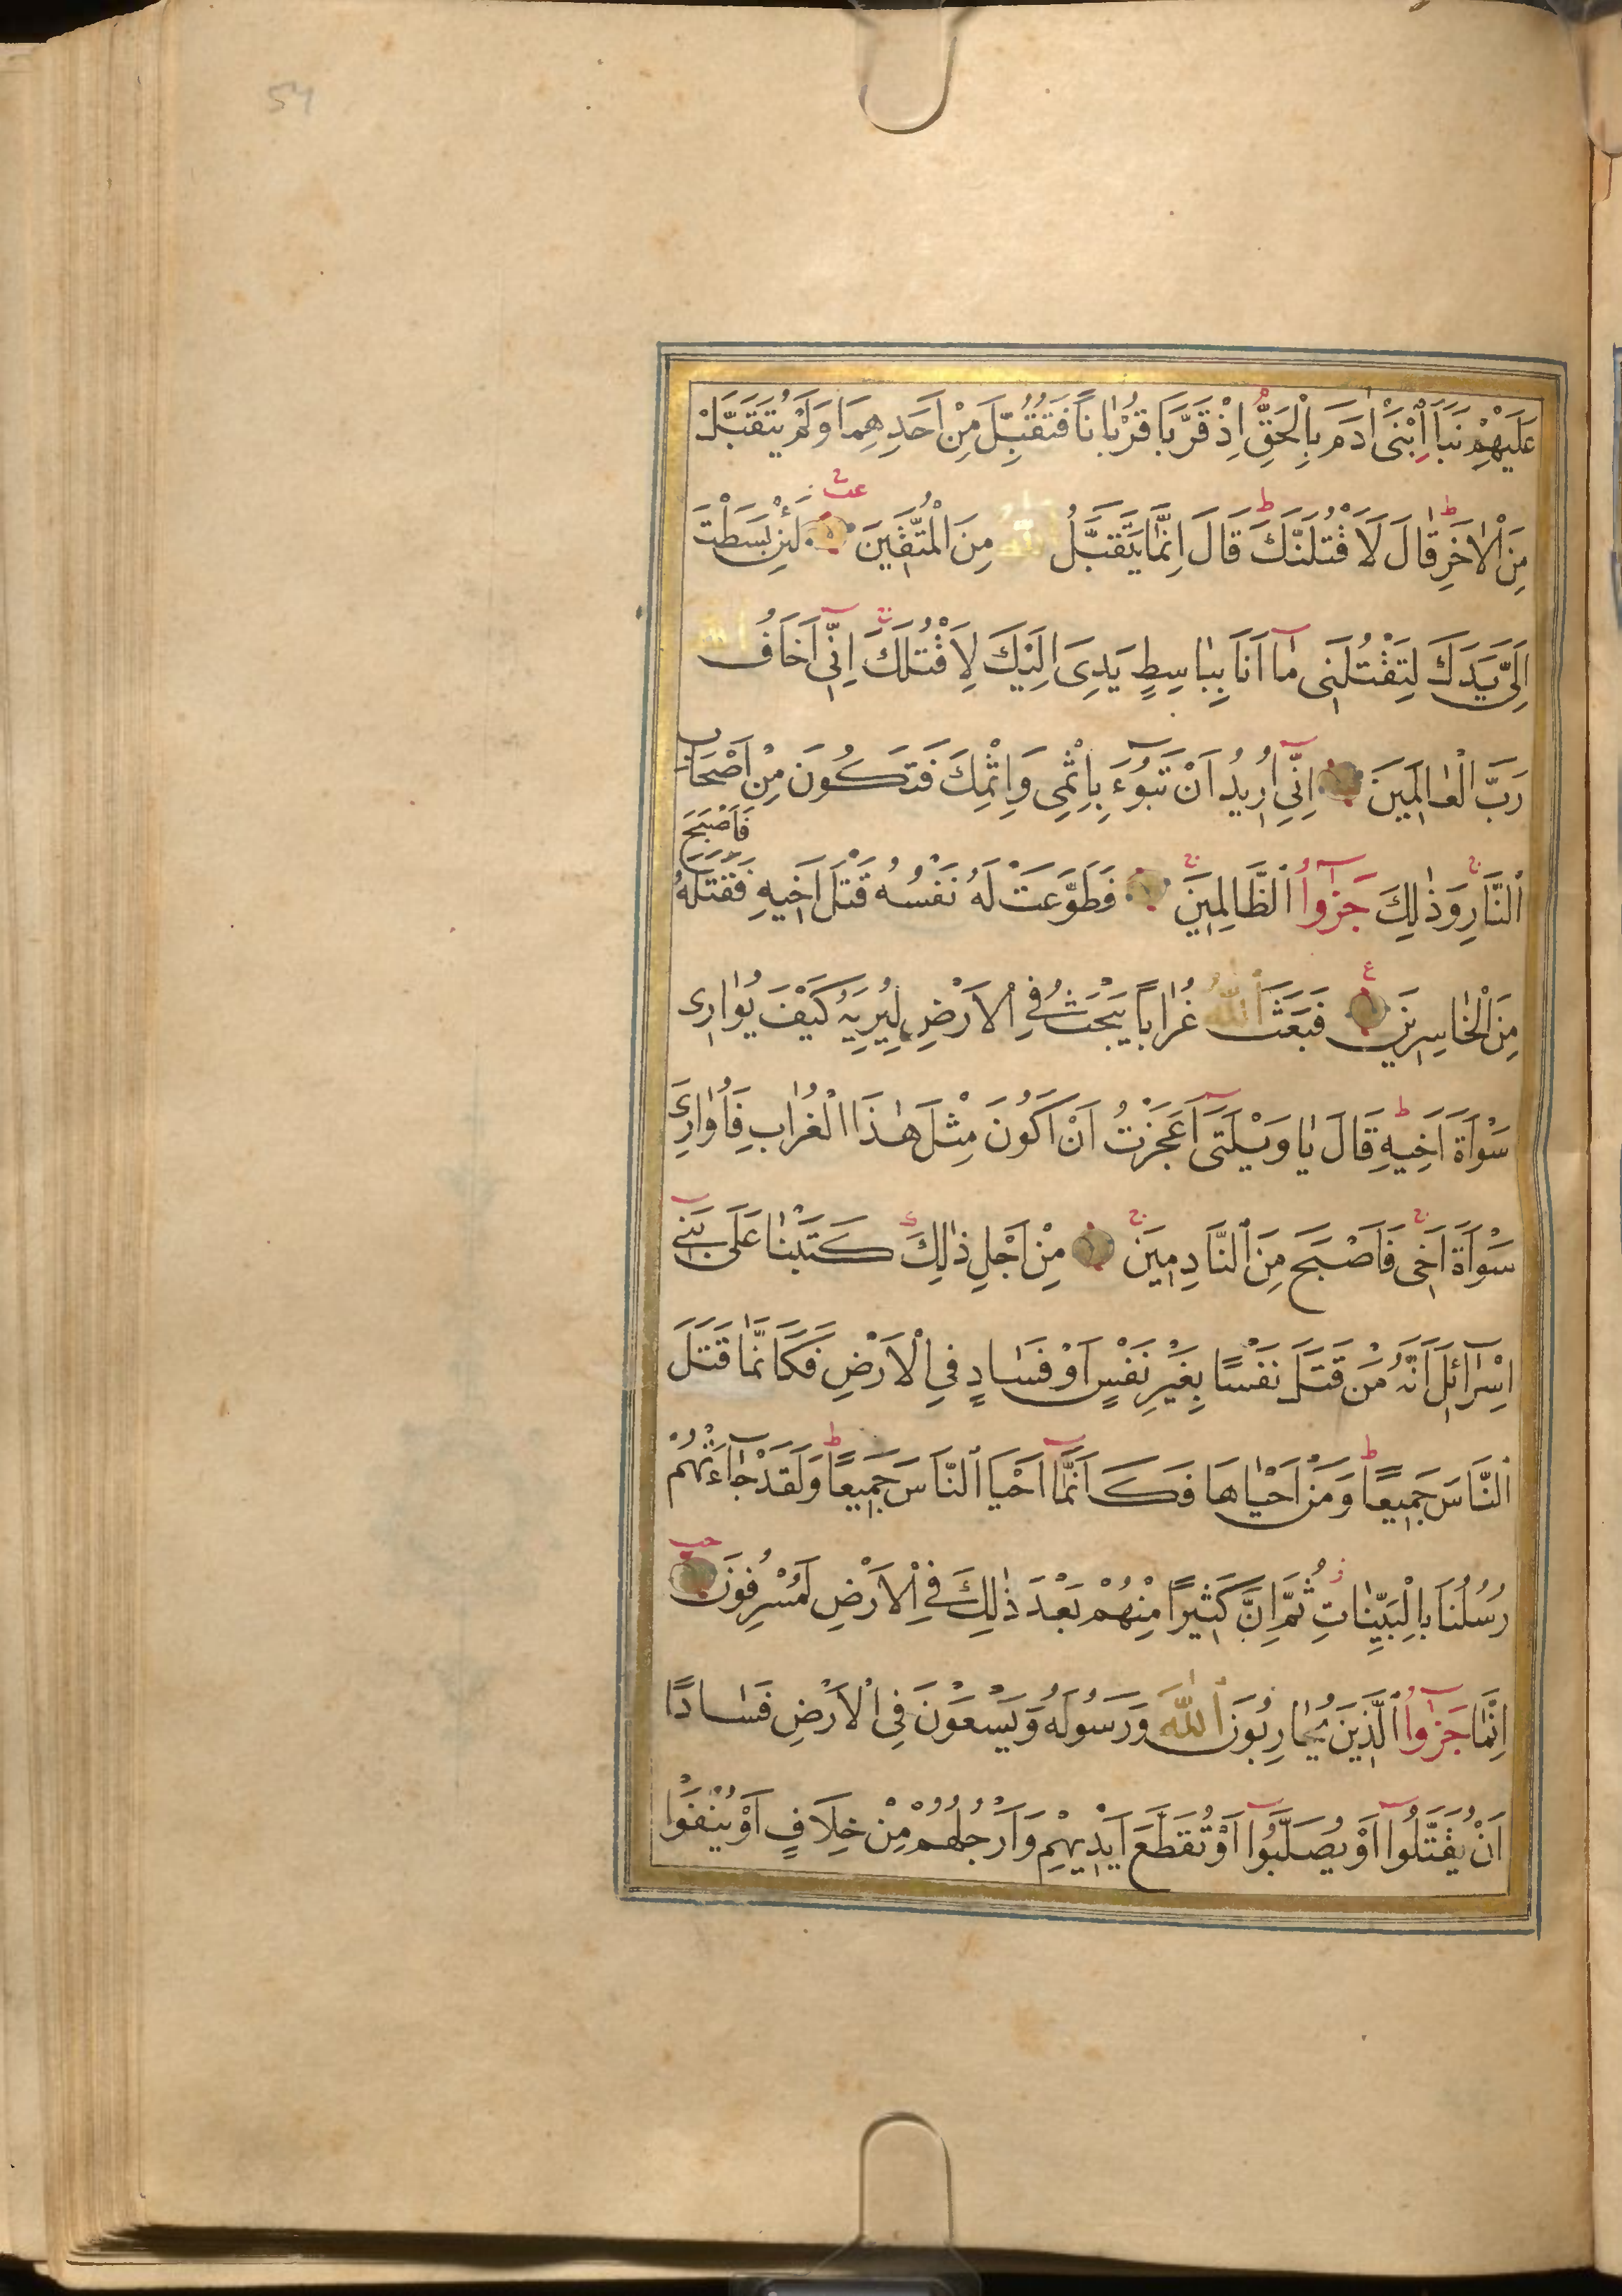 54
عَلَيْهِمْ نَبَاَ ابْنَىْ اٰدَمَ بِالْحَقِّ اِذْ قَرَّبَا قُرْبَانًا فَتُقُبِّلَ مِنْ اَحَدِهِمَا وَلَمْ يُتَقَبَّلْ
مِنَ الْاٰخَرِ قَالَ لَاَقْتُلَنَّكَ قَالَ اِنَّمَا يَتَقَبَّلُ اللّٰهُ مِنَ الْمُتَّقِينَ لَئِنْ بَسَطْتَ
اِلَىَّ يَدَكَ لِتَقْتُلَنِى مَا اَنَا بِبَاسِطٍ يَدِىَ اِلَيْكَ لِاَقْتُلَكَ اِنِّى اَخَافُ اللّٰهَ
رَبَّ الْعَالَمِينَ اِنِّى اُرِيدُ اَنْ تَبُوءَ بِاِثْمِى وَاِثْمِكَ فَتَكُونَ مِنْ اَصْحَابِ
النَّارِ وَذٰلِكَ جَزٰٓؤُا الظَّالِمِينَ فَطَوَّعَتْ لَهُ نَفْسُهُ قَتْلَ اَخِيهِ فَقَتَلَهُ فَاَصْبَحَ
مِنَ الْخَاسِرِينَ فَبَعَثَ اللّٰهُ غُرَابًا يَبْحَثُ فِى الْاَرْضِ لِيُرِيَهُ كَيْفَ يُوَارِى
سَوْاَةَ اَخِيهِ قَالَ يَا وَيْلَتٰى اَعَجَزْتُ اَنْ اَكُونَ مِثْلَ هٰذَا الْغُرَابِ فَاُوَارِىَ
سَوْاَةَ اَخِى فَاَصْبَحَ مِنَ النَّادِمِينَ مِنْ اَجْلِ ذٰلِكَ كَتَبْنَا عَلٰى بَنِى
اِسْرَائِلَ اَنَّهُ مَنْ قَتَلَ نَفْسًا بِغَيْرِ نَفْسٍ اَوْ فَسَادٍ فِى الْاَرْضِ فَكَاَنَّمَا قَتَلَ
النَّاسَ جَمِيعًا وَمَنْ اَحْيَاهَا فَكَاَنَّمَا اَحْيَا النَّاسَ جَمِيعًا وَلَقَدْ جَاءَتْهُمْ
رُسُلُنَا بِالْبَيِّنَاتِ ثُمَّ اِنَّ كَثِيرًا مِنْهُمْ بَعْدَ ذٰلِكَ فِى الْاَرْضِ لَمُسْرِفُونَ
اِنَّمَا جَزٰٓؤُا الَّذِينَ يُحَارِبُونَ اللّٰهَ وَرَسُولَهُ وَيَسْعَوْنَ فِى الْاَرْضِ فَسَادًا
اَنْ يُقَتَّلُوا اَوْ يُصَلَّبُوا اَوْ تُقَطَّعَ اَيْدِيهِمْ وَاَرْجُلُهُمْ مِنْ خِلَافٍ اَوْ يُنْفَوْا